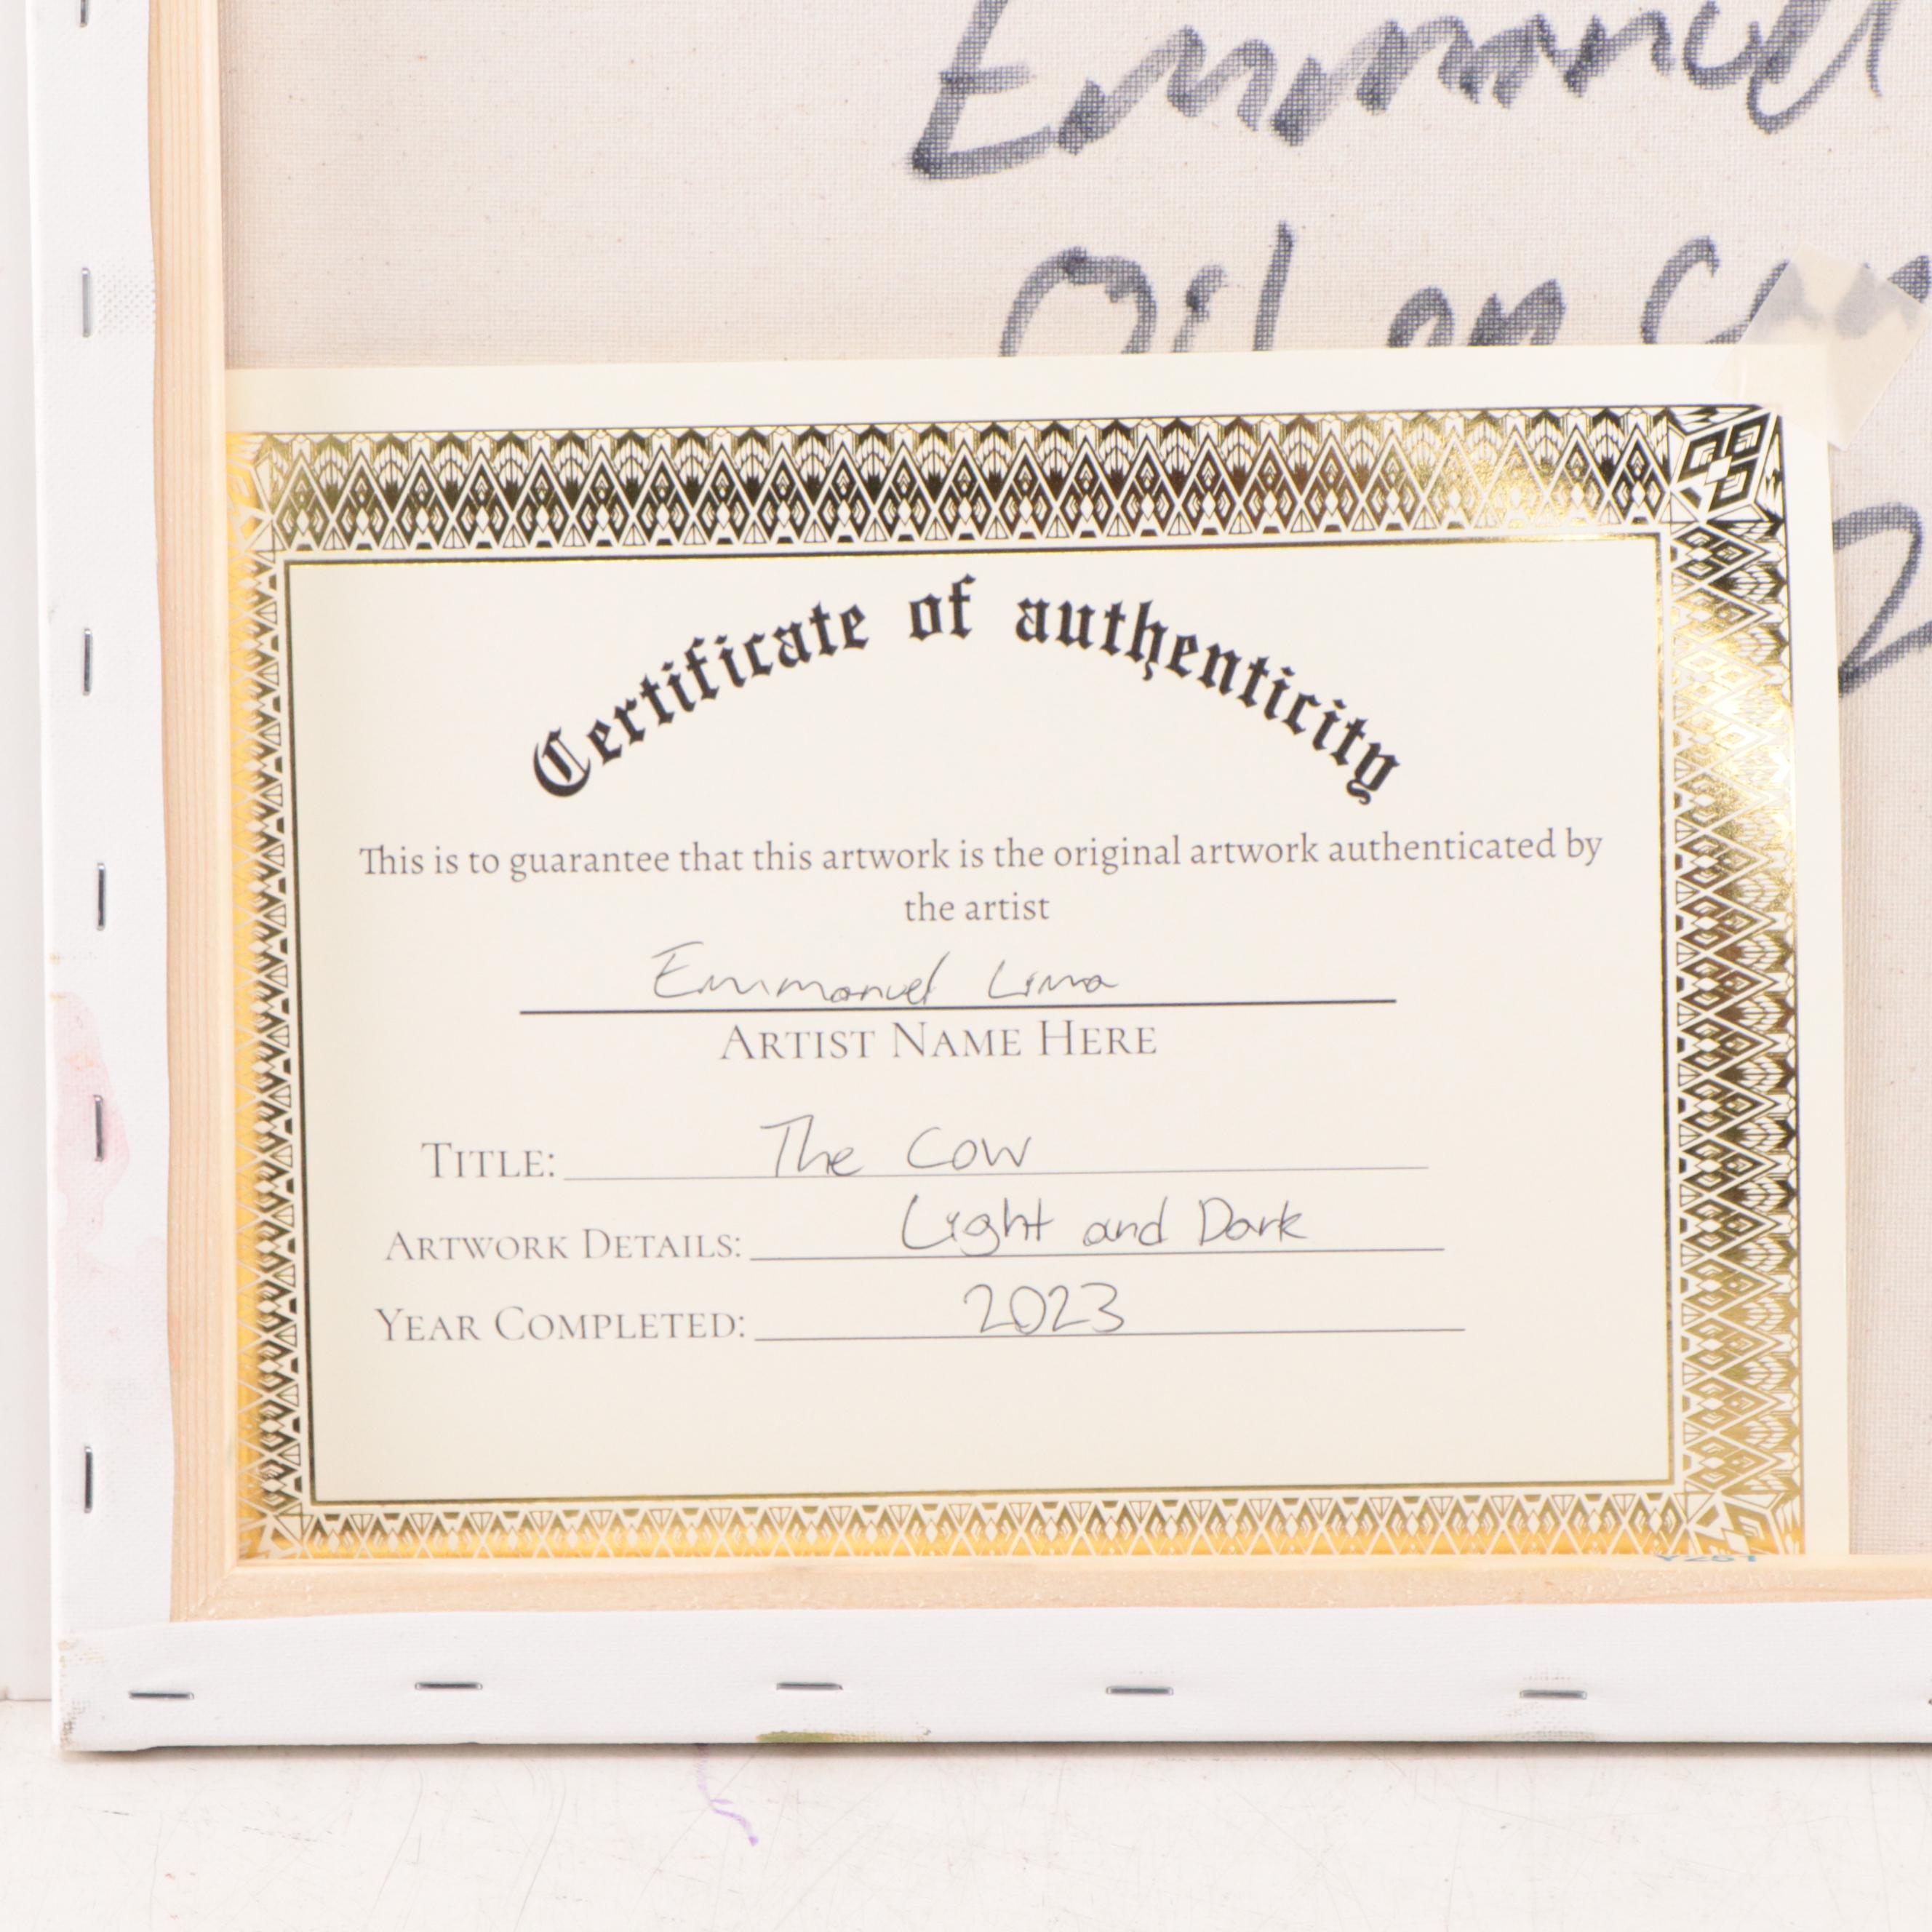 Emmanuel
Oil on
2
Certificate of authenticity
This is to guarantee that this artwork is the original artwork authenticated by
the artist
Emmanuel Lima
ARTIST NAME HERE
TITLE: The Cow
ARTWORK DETAILS: Light and Dark
YEAR COMPLETED: 2023